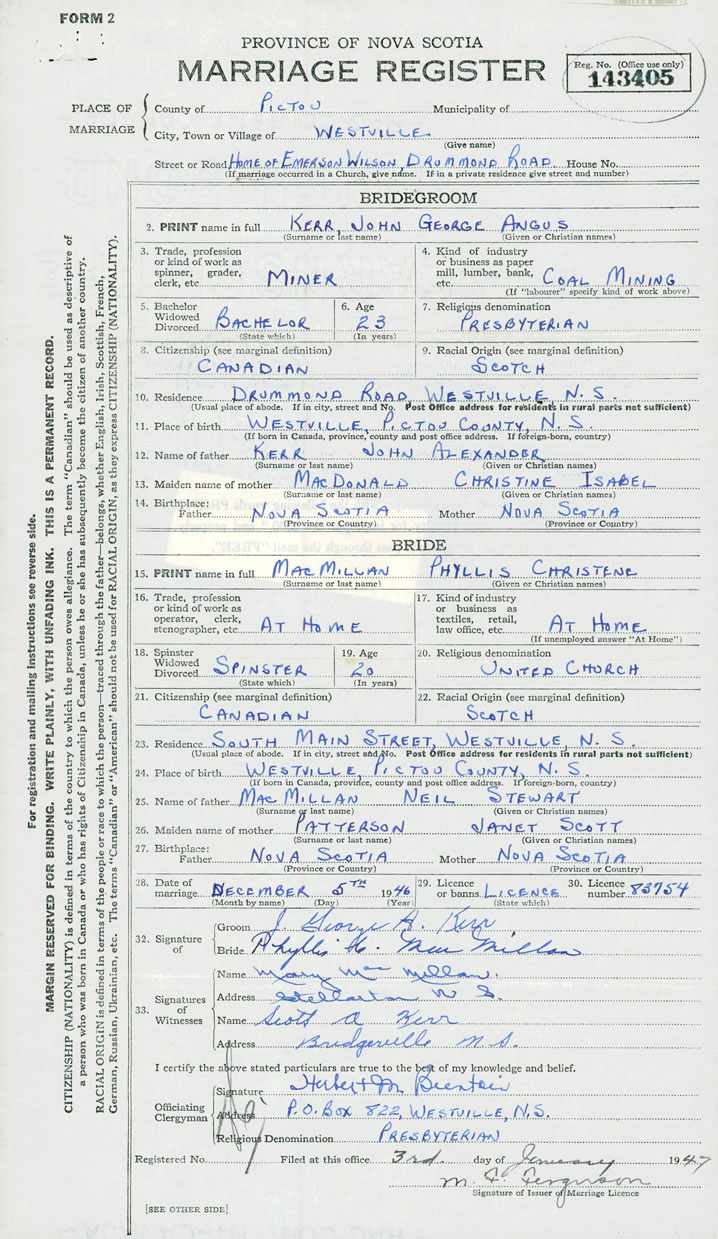 FORM 2
PROVINCE OF NOVA SCOTIA
MARRIAGE REGISTER
Reg. No. (Office use only)
143405
PLACE OF MARRIAGE
County of PICTOU Municipality of
City, Town or Village of WESTVILLE
(Give name)
Street or Road HOME OF EMERSON WILSON, DRUMMOND ROAD House No.
(If marriage occurred in a Church, give name. If in a private residence give street and number)
BRIDEGROOM
2. PRINT name in full KERR, JOHN GEORGE ANGUS
(Surname or last name) (Given or Christian names)
3. Trade, profession or kind of work as spinner, grader, clerk, etc. MINER
4. Kind of industry or business as paper mill, lumber, bank, etc. COAL MINING
(If "labourer" specify kind of work above)
5. Bachelor Widowed Divorced BACHELOR
(State which)
6. Age 23
(In years)
7. Religious denomination
PRESBYTERIAN
8. Citizenship (see marginal definition)
CANADIAN
9. Racial Origin (see marginal definition)
SCOTCH
10. Residence DRUMMOND ROAD, WESTVILLE, N.S.
(Usual place of abode. If in city, street and No. Post Office address for residents in rural parts not sufficient)
11. Place of birth WESTVILLE, PICTOU COUNTY, N.S.
(If born in Canada, province, county and post office address. If foreign-born, country)
12. Name of father KERR JOHN ALEXANDER
(Surname or last name) (Given or Christian names)
13. Maiden name of mother MACDONALD CHRISTINE ISABEL
(Surname or last name) (Given or Christian names)
14. Birthplace: Father NOVA SCOTIA Mother NOVA SCOTIA
(Province or Country) (Province or Country)
BRIDE
15. PRINT name in full MACMILLAN PHYLLIS CHRISTENE
(Surname or last name) (Given or Christian names)
16. Trade, profession or kind of work as operator, clerk, stenographer, etc. AT HOME
17. Kind of industry or business as textiles, retail, law office, etc. AT HOME
(If unemployed answer "At Home")
18. Spinster Widowed Divorced SPINSTER
(State which)
19. Age 20
(In years)
20. Religious denomination
UNITED CHURCH
21. Citizenship (see marginal definition)
CANADIAN
22. Racial Origin (see marginal definition)
SCOTCH
23. Residence SOUTH MAIN STREET, WESTVILLE, N.S.
(Usual place of abode. If in city, street and No. Post Office address for residents in rural parts not sufficient)
24. Place of birth WESTVILLE, PICTOU COUNTY, N.S.
(If born in Canada, province, county and post office address. If foreign-born, country)
25. Name of father MACMILLAN NEIL STEWART
(Surname or last name) (Given or Christian names)
26. Maiden name of mother PATTERSON JANET SCOTT
(Surname or last name) (Given or Christian names)
27. Birthplace: Father NOVA SCOTIA Mother NOVA SCOTIA
(Province or Country) (Province or Country)
28. Date of marriage DECEMBER 5TH 1946
(Month by name) (Day) (Year)
29. Licence or banns LICENCE
(State which)
30. Licence number 83754
32. Signature of
Groom J. George A. Kerr
Bride Phyllis C. Mac Millan
33. Signatures of Witnesses
Name Mary Mac Millan.
Address Stellarton N S.
Name Scott A Kerr
Address Bridgeville N.S.
I certify the above stated particulars are true to the best of my knowledge and belief.
Officiating Clergyman
Signature Herbert M.
Address P.O. BOX 822, WESTVILLE, N.S.
Religious Denomination PRESBYTERIAN
Registered No. Filed at this office 3rd day of January 1947
M. F. Ferguson
Signature of Issuer of Marriage Licence
[SEE OTHER SIDE]
For registration and mailing instructions see reverse side.
MARGIN RESERVED FOR BINDING. WRITE PLAINLY, WITH UNFADING INK. THIS IS A PERMANENT RECORD.
CITIZENSHIP (NATIONALITY) is defined in terms of the country to which the person owes allegiance. The term "Canadian" should be used as descriptive of
a person who was born in Canada or who has rights of Citizenship in Canada, unless he or she has subsequently become the citizen of another country.
RACIAL ORIGIN is defined in terms of the people or race to which the person—traced through the father—belongs, whether English, Irish, Scottish, French,
German, Russian, Ukrainian, etc. The terms "Canadian" or "American" should not be used for RACIAL ORIGIN, as they express CITIZENSHIP (NATIONALITY).